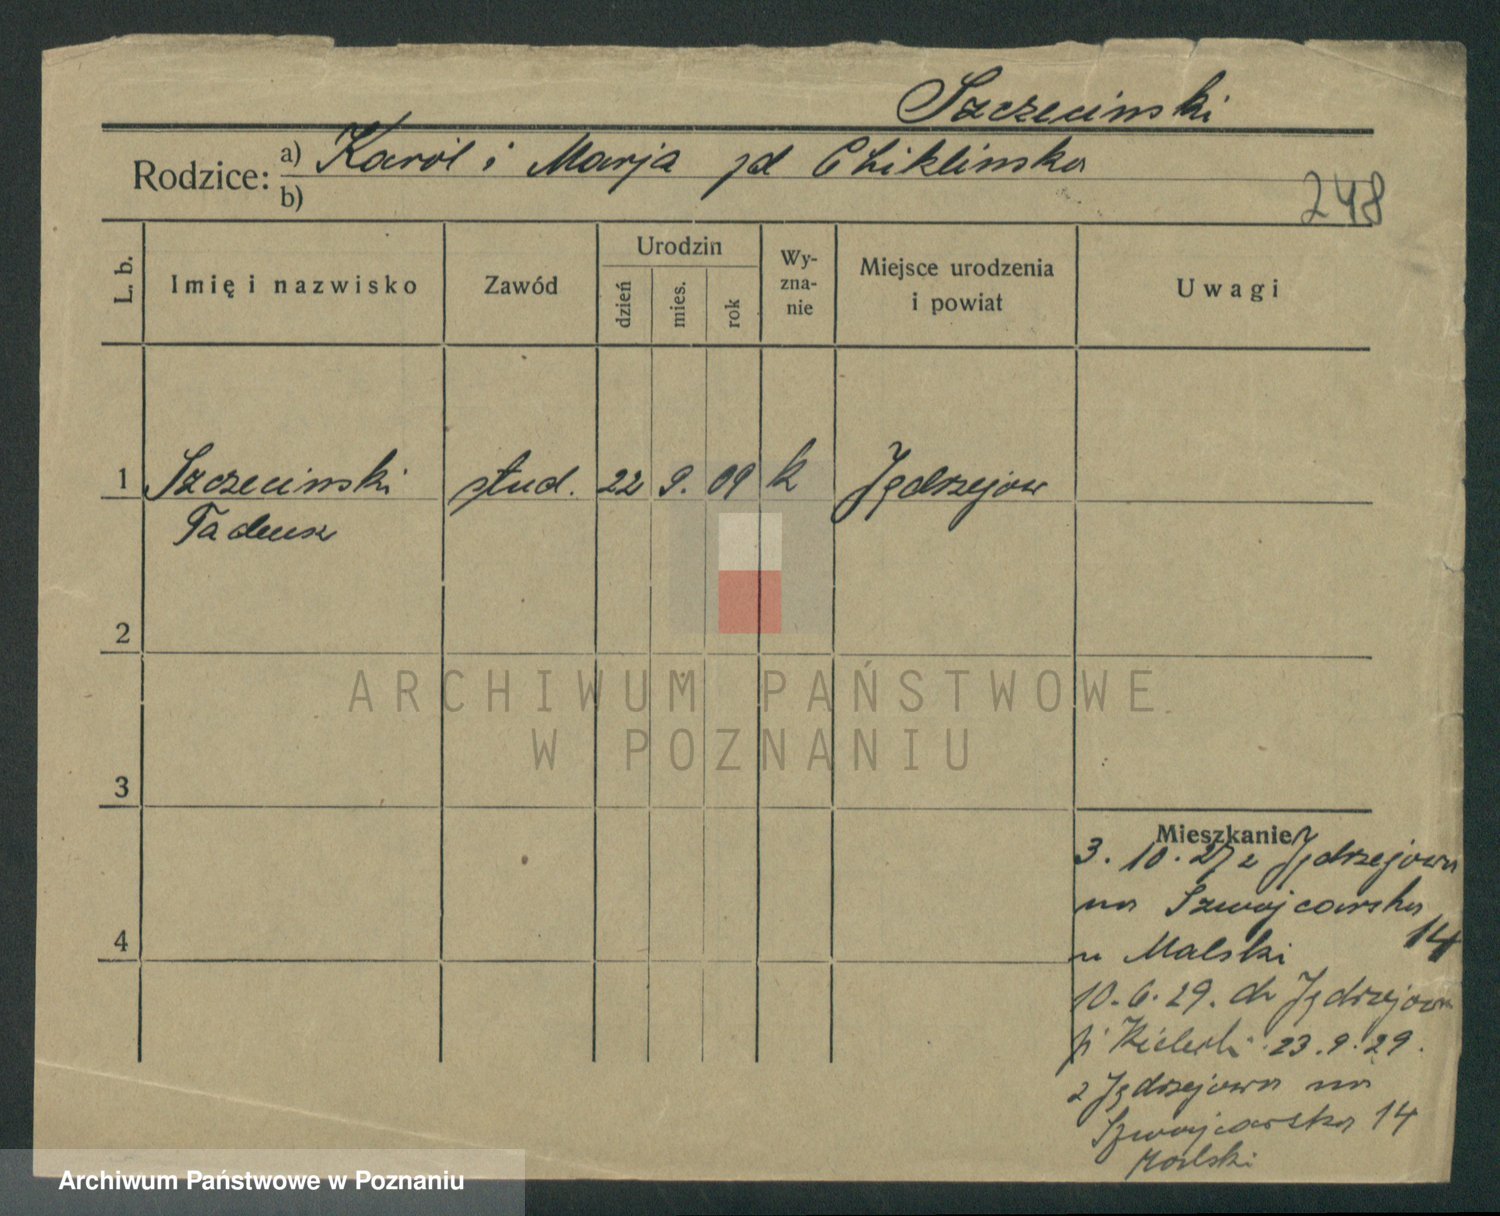 Szczecinski
Rodzice: a) Karol i Marja zd Chiklinska
b)
248
L. b.
Imię i nazwisko
Zawód
Urodzin
dzień
mies.
rok
Wy-
zna-
nie
Miejsce urodzenia
i powiat
Uwagi
1 Szczecinski stud. 22 9. 09 k Jędrzejow
Tadeusz
2
ARCHIWUM PAŃSTWOWE
W POZNANIU
3
Mieszkanie
3. 10. 27 z Jędrzejowa
na Szwajcarska
14
u Malski
10. 6. 29. do Jędrzejowa
23. 9. 29.
4
z Jędrzejowa na
Szwajcarska 14
Malski
Archiwum Państwowe w Poznaniu